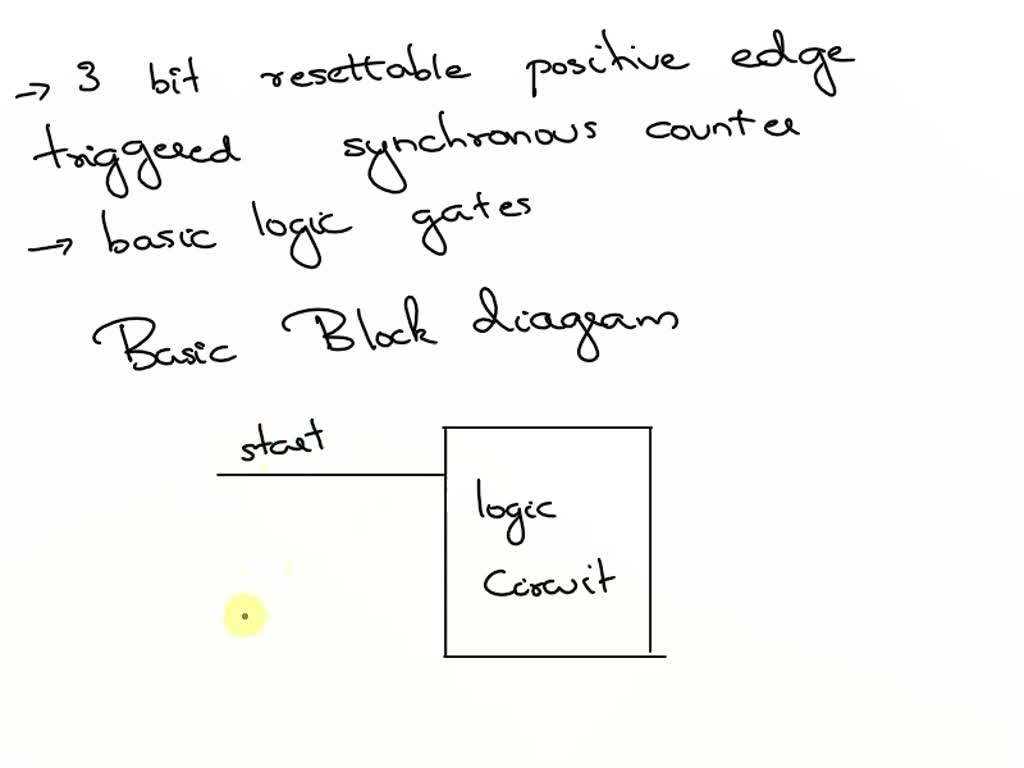 → 3 bit resettable positive edge
triggered synchronous counter
→ basic logic gates
Basic Block diagram
start
logic
Circuit